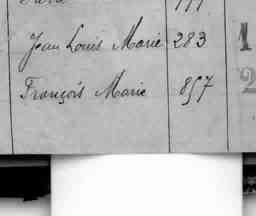 Jean Louis Marie 283 1
François Marie 857 2